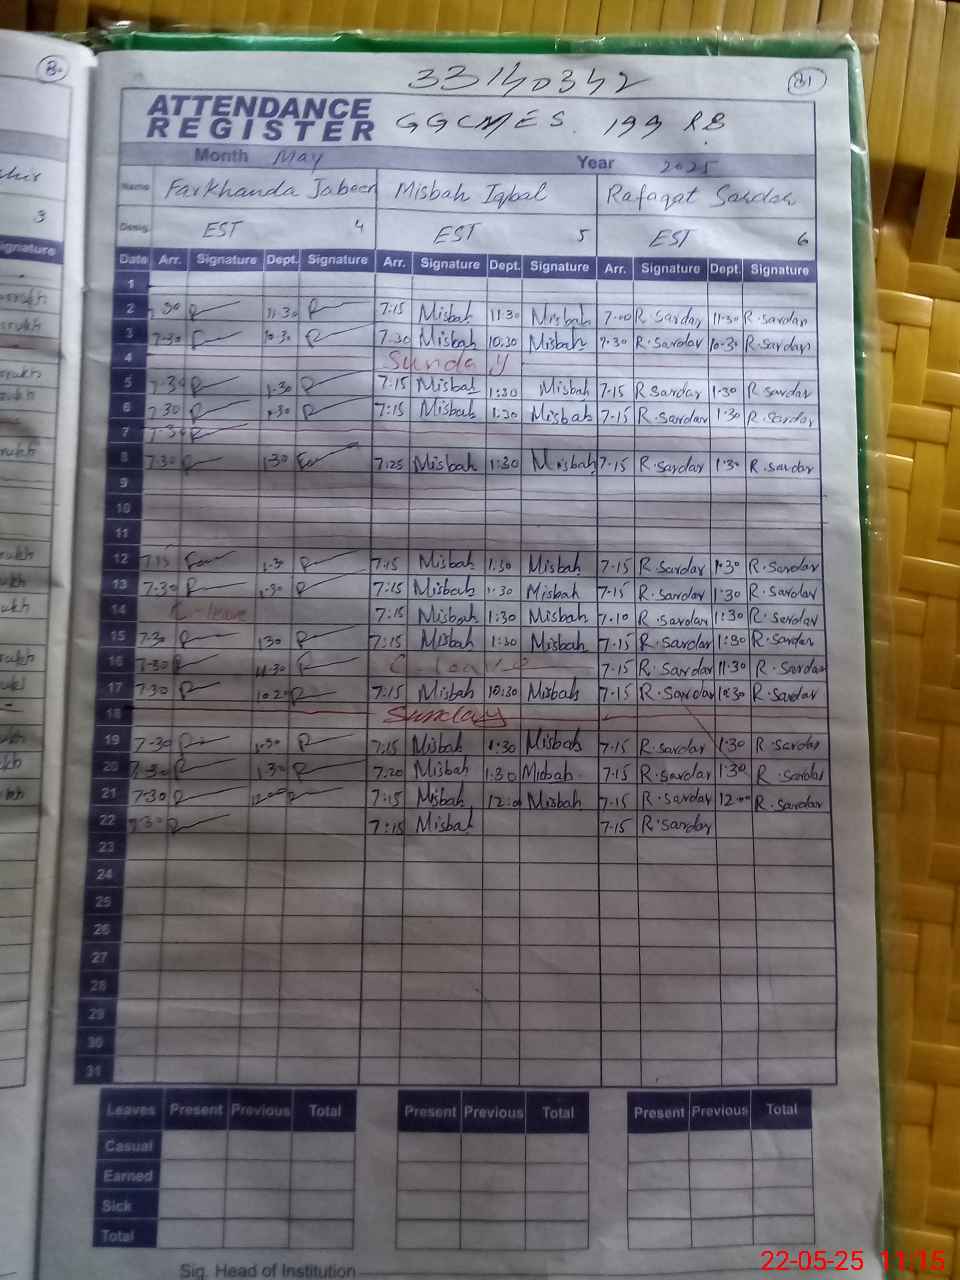 33140342
81
ATTENDANCE
REGISTER GGCMES. 199 RB
Month May Year 2025
Name Farkhanda Jabeen Misbah Iqbal Rafaqat Sardar
Desig. EST 4 EST 5 EST 6
Date Arr. Signature Dept. Signature Arr. Signature Dept. Signature Arr. Signature Dept. Signature
1
2 11:30 7:15 Misbah 11:30 Misbah 7-00 R. Sardar 11-30 R. Sardar
3 7-30 10-30 7:30 Misbah 10:30 Misbah 7-30 R. Sardar 10-30 R. Sardar
4 Sunday
5 7-30 1-30 7:15 Misbah 1:30 Misbah 7-15 R Sardar 1-30 R. Sardar
6 7-30 1-30 7:15 Misbah 1:30 Misbah 7-15 R. Sardar 1-30 R. Sardar
7 7-30
8 7-30 1-30 7:25 Misbah 1:30 Misbah 7-15 R. Sardar 1-30 R. Sardar
9
10
11
12 7-15 1-30 7:15 Misbah 1:30 Misbah 7-15 R. Sardar 1-30 R. Sardar
13 7-30 1-30 7:15 Misbah 1:30 Misbah 7-15 R. Sardar 1-30 R. Sardar
14 C-leave 7:15 Misbah 1:30 Misbah 7-10 R. Sardar 1:30 R. Sardar
15 7-30 130 7:15 Misbah 1:30 Misbah 7-15 R. Sardar 1:30 R. Sardar
16 7-30 11-30 C-leave 7-15 R. Sardar 11-30 R. Sardar
17 7-30 7:15 Misbah 10:30 Misbah 7-15 R. Sardar 10:30 R. Sardar
18 Sunday
19 7-30 1-30 7:15 Misbah 1:30 Misbah 7-15 R. Sardar 1-30 R. Sardar
20 7-30 1-30 7:20 Misbah 1:30 Misbah 7-15 R. Sardar 1-30 R. Sardar
21 7-30 12-00 7:15 Misbah 12:00 Misbah 7-15 R. Sardar 12-00 R. Sardar
22 7-30 7:15 Misbah 7-15 R. Sardar
23
24
25
26
27
28
29
30
31
Leaves Present Previous Total Present Previous Total Present Previous Total
Casual
Earned
Sick
Total
Sig. Head of Institution
22-05-25 11:15